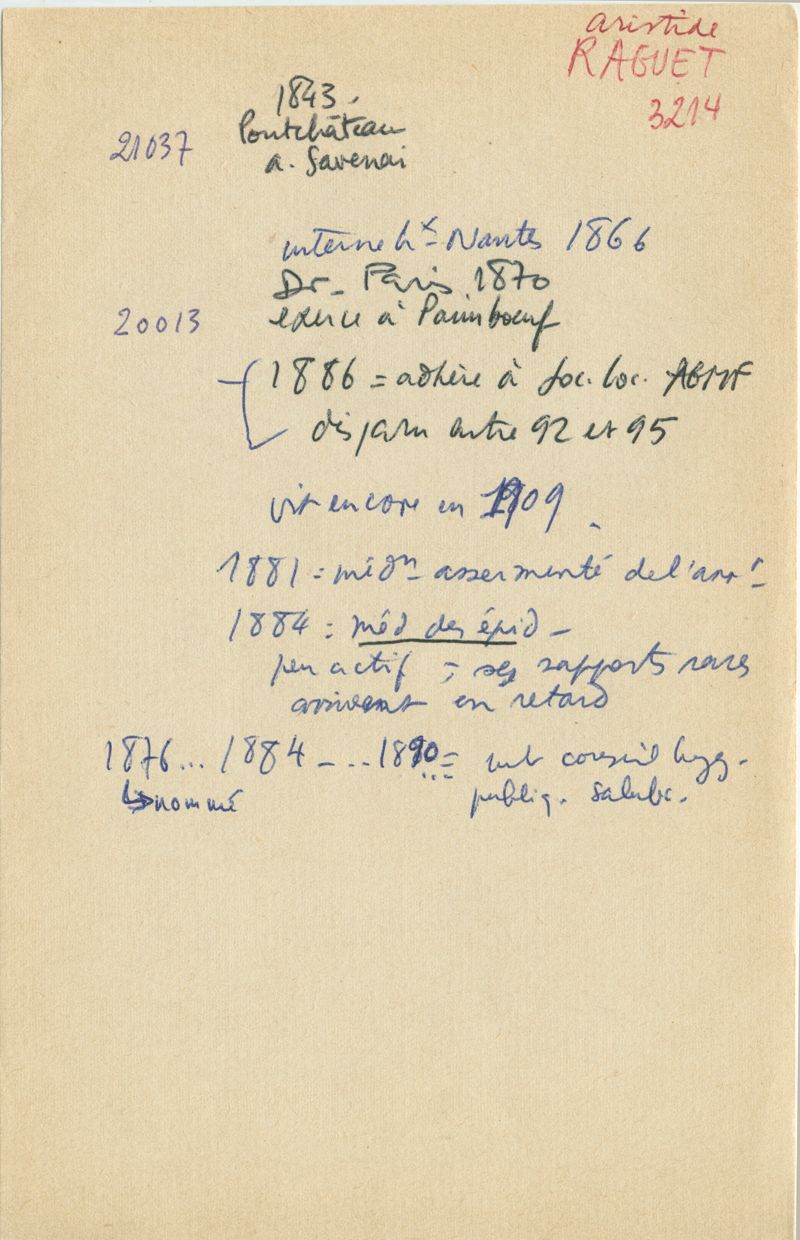 aristide
RAGUET
3214
1843.
Pontchâteau
21037
a. Savenai
interne hx Nantes 1866
Dr. Paris 1870
20013 exerce à Paimboeuf
1886 = adhère à Soc. loc. AGMF
disparu entre 92 et 95
vit encore en 1909.
1881 = médn assermenté de l'arrt
1884 : méd des épid -
peu actif = ses rapports rares
arrivent en retard
1876... 1884 -... 1890... = conseil hyg.
↳ nommé publiq. salubr.